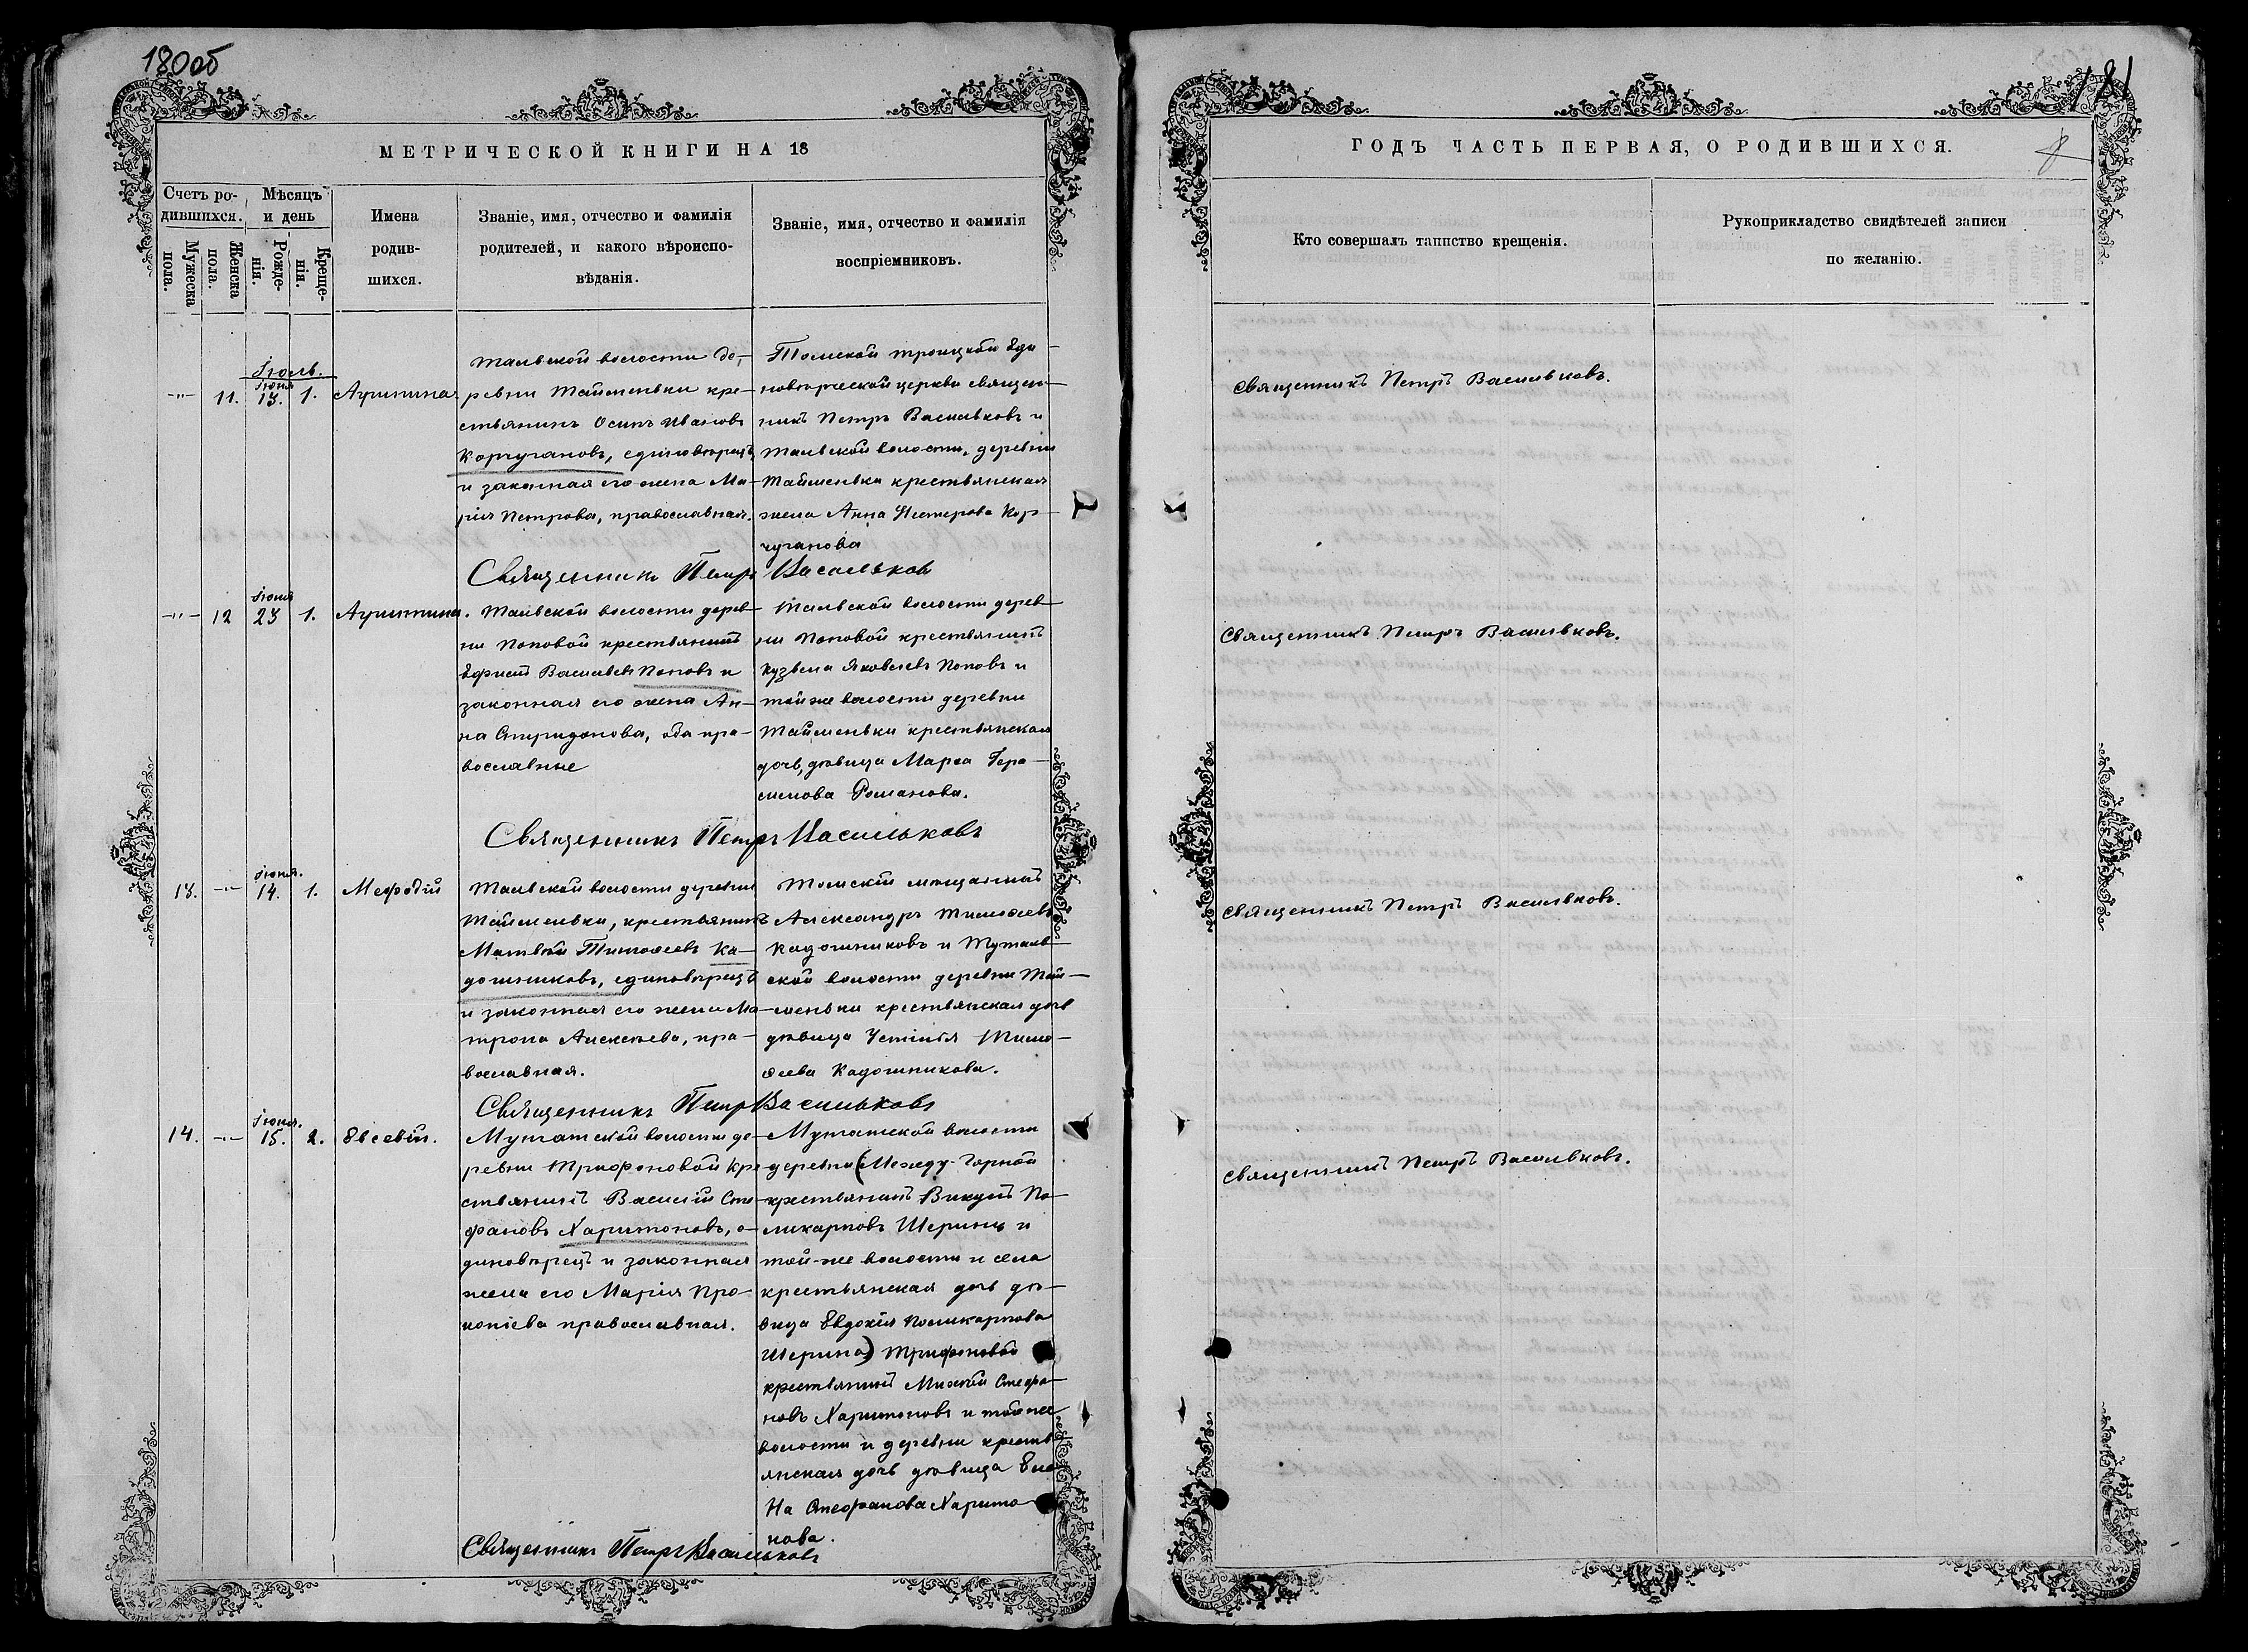 180об
МЕТРИЧЕСКОЙ КНИГИ НА 18
Счетъ ро-
дившихся.
Мѣсяцъ
и день
Мужеска
пола.
Женска
пола.
Рожде-
нія.
Креще-
нія.
Имена
родив-
шихся.
Званіе, имя, отчество и фамилія
родителей, и какого вѣроиспо-
вѣданія.
Званіе, имя, отчество и фамилія
воспріемниковъ.
Іюль.
Іюня
-"- 11. 13. 1. Агрипина
волости де-
ревни Тайменьки кре-
стьянинъ Осипъ Ивановъ
Корчугановъ, единовѣрецъ
и законная его жена Ма-
рія Петрова, православная.
Томской троицкой еди-
новѣрческой церкви священ-
никъ Петръ Васильковъ и
волости, деревни
Тайменьки крестьянская
жена Анна Нестерова Кор-
чуганова
Священникъ Петръ Васильков
Іюня
-"- 12 23 1. Агрипина.
волости дерев-
ни Поповой крестьянинъ
Васильевъ Поповъ и
законная его жена Ан-
на Спиридонова, оба пра-
вославные
волости дерев-
ни Поповой крестьянинъ
Кузьма Яковлевъ Поповъ и
той же волости деревни
Тайменьки крестьянская
дочь, дѣвица Марѳа Гера-
симова Романова.
Священникъ Петръ Васильковъ
Іюня.
13. -"- 14. 1. Меѳодій
волости деревни
Тайменьки, крестьянинъ
Матвѣй Тимоѳеевъ Ка-
дошниковъ, единовѣрецъ
и законная его жена Ма-
трона Алексѣева, пра-
вославная.
Томскій мѣщанинъ
Александръ Тимоѳеевъ
Кадошниковъ и Тутальской
ской волости деревни Тай-
меньки крестьянская дочь
дѣвица Устинія Тимо-
ѳеева Кадошникова.
Священникъ Петръ Васильковъ
Іюня.
14. -"- 15. 2. Евсевій.
Мунгатской волости де-
ревни Трифоновой кре-
стьянинъ Василій Сте-
фановъ Харитоновъ, е-
диновѣрецъ и законная
жена его Марія Про-
копіева православная.
Мунгатской волости
деревни (Между-Горной
крестьянинъ Викулъ По-
ликарповъ Шеринъ и
той-же волости и села
крестьянская дочь дѣ-
вица Евдокія Поликарпова
Шерина) Трифоновой
крестьянинъ Стефа-
новъ Харитоновъ и той же
волости и деревни кресть-
янская дочь дѣвица Еле-
на Стефанова Харито-
нова.
Священникъ Петръ Васильковъ
181
ГОДЪ ЧАСТЬ ПЕРВАЯ, О РОДИВШИХСЯ.
Кто совершалъ таинство крещенія.
Рукоприкладство свидѣтелей записи
по желанію.
Священникъ Петръ Васильковъ.
Священникъ Петръ Васильковъ.
Священникъ Петръ Васильковъ.
Священникъ Петръ Васильковъ.